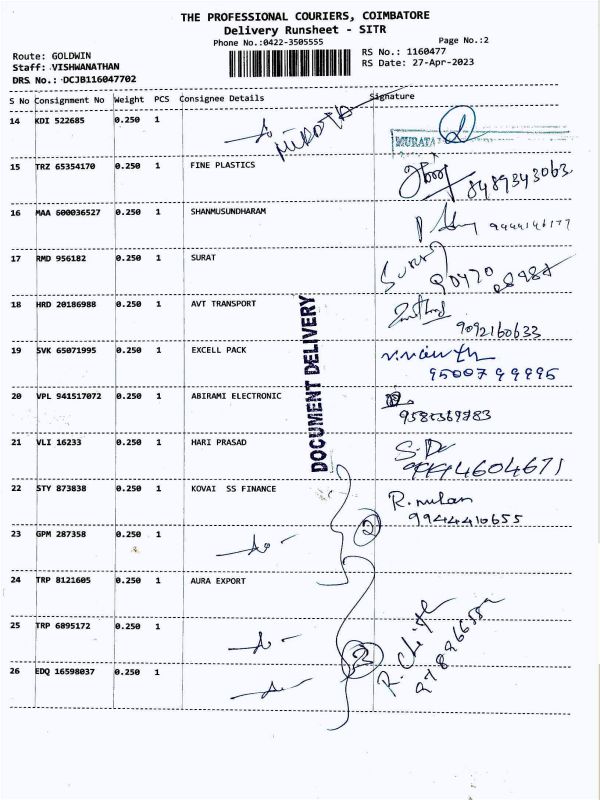 THE PROFESSIONAL COURIERS, COIMBATORE
Delivery Runsheet - SITR
Phone No.:0422-3505555
Page No.:2
Route: GOLDWIN
RS No.: 1160477
Staff: VISHWANATHAN
RS Date: 27-Apr-2023
DRS No.: DCJB116047702
S No Consignment No Weight PCS Consignee Details Signature
14 KDI 522685 0.250 1
MURATA
MURATA
15 TRZ 65354170 0.250 1 FINE PLASTICS
8489343063
16 MAA 600036527 0.250 1 SHANMUSUNDHARAM
17 RMD 956182 0.250 1 SURAT
18 HRD 20186988 0.250 1 AVT TRANSPORT
9092160633
19 SVK 65071995 0.250 1 EXCELL PACK
9500799995
20 VPL 941517072 0.250 1 ABIRAMI ELECTRONIC
21 VLI 16233 0.250 1 HARI PRASAD
9994604671
22 STY 873838 0.250 1 KOVAI SS FINANCE
9944410655
DOCUMENT DELIVERY
23 GPM 287358 0.250 1
2
24 TRP 8121605 0.250 1 AURA EXPORT
25 TRP 6895172 0.250 1
3
26 EDQ 16598037 0.250 1